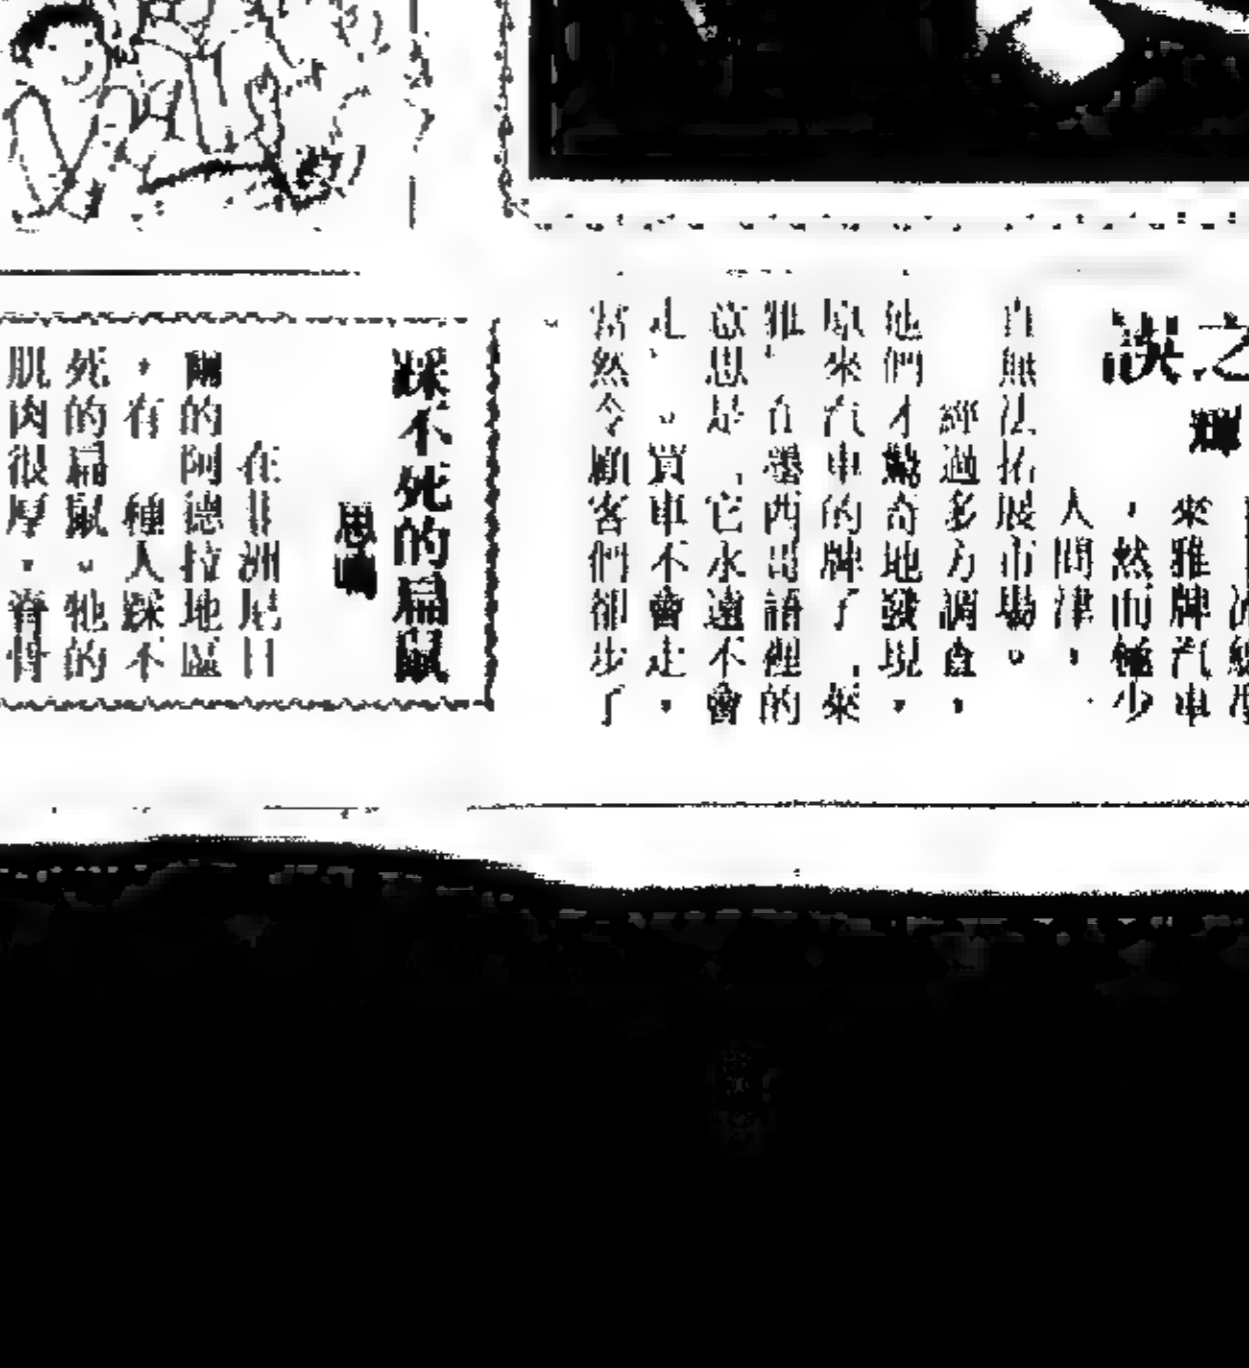 之誤
輝
來雅牌汽車
，然而極少
人問津，
自無法拓展市場。
經過多方調查，
他們才驚奇地發現，
原來汽車的牌子「來
雅」在墨西哥語裡的
意思是「它永遠不會
走」。買車不會走，
當然令顧客們卻步了
。
踩不死的扁鼠
思議
在非洲尼日
爾的阿德拉地區
，有一種人踩不
死的扁鼠。牠的
肌肉很厚，脊骨